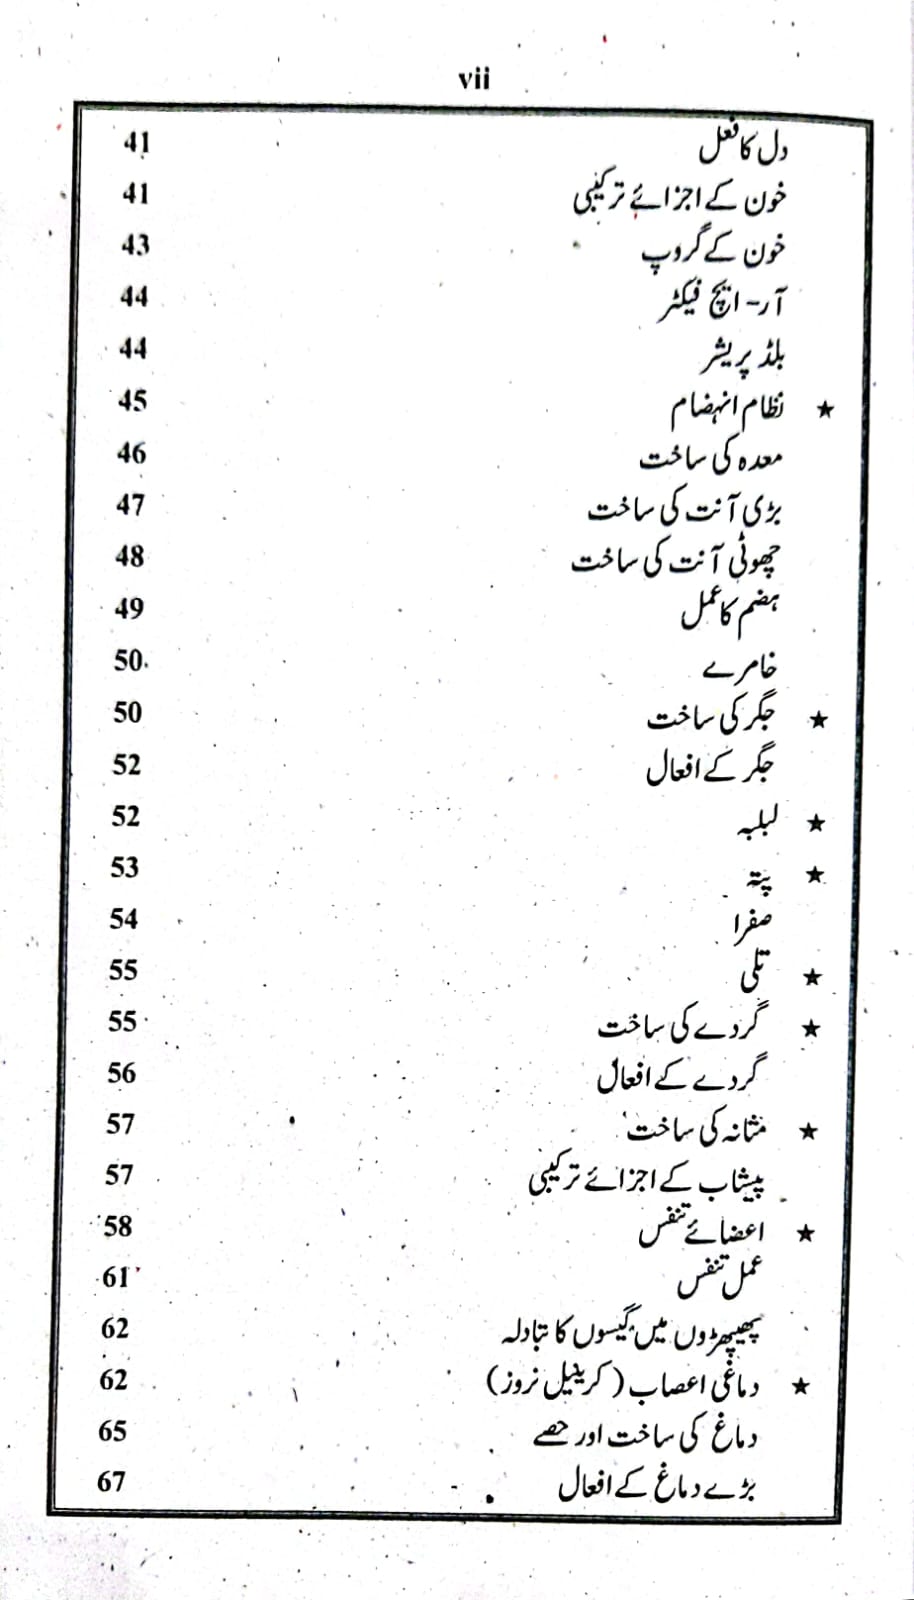 vii
دل کا فعل 41
خون کے اجزائے ترکیبی 41
خون کے گروپ 43
آر- ایچ فیکٹر 44
بلڈ پریشر 44
★ نظام انہضام 45
معدہ کی ساخت 46
بڑی آنت کی ساخت 47
چھوٹی آنت کی ساخت 48
ہضم کا عمل 49
خامرے 50
★ جگر کی ساخت 50
جگر کے افعال 52
★ لبلبہ 52
★ پتہ 53
صفرا 54
★ تلی 55
★ گردے کی ساخت 55
گردے کے افعال 56
★ مثانہ کی ساخت 57
پیشاب کے اجزائے ترکیبی 57
★ اعضائے تنفس 58
عمل تنفس 61
پھیپھڑوں میں گیسوں کا تبادلہ 62
★ دماغی اعصاب (کرینیل نروز) 62
دماغ کی ساخت اور حصے 65
بڑے دماغ کے افعال 67